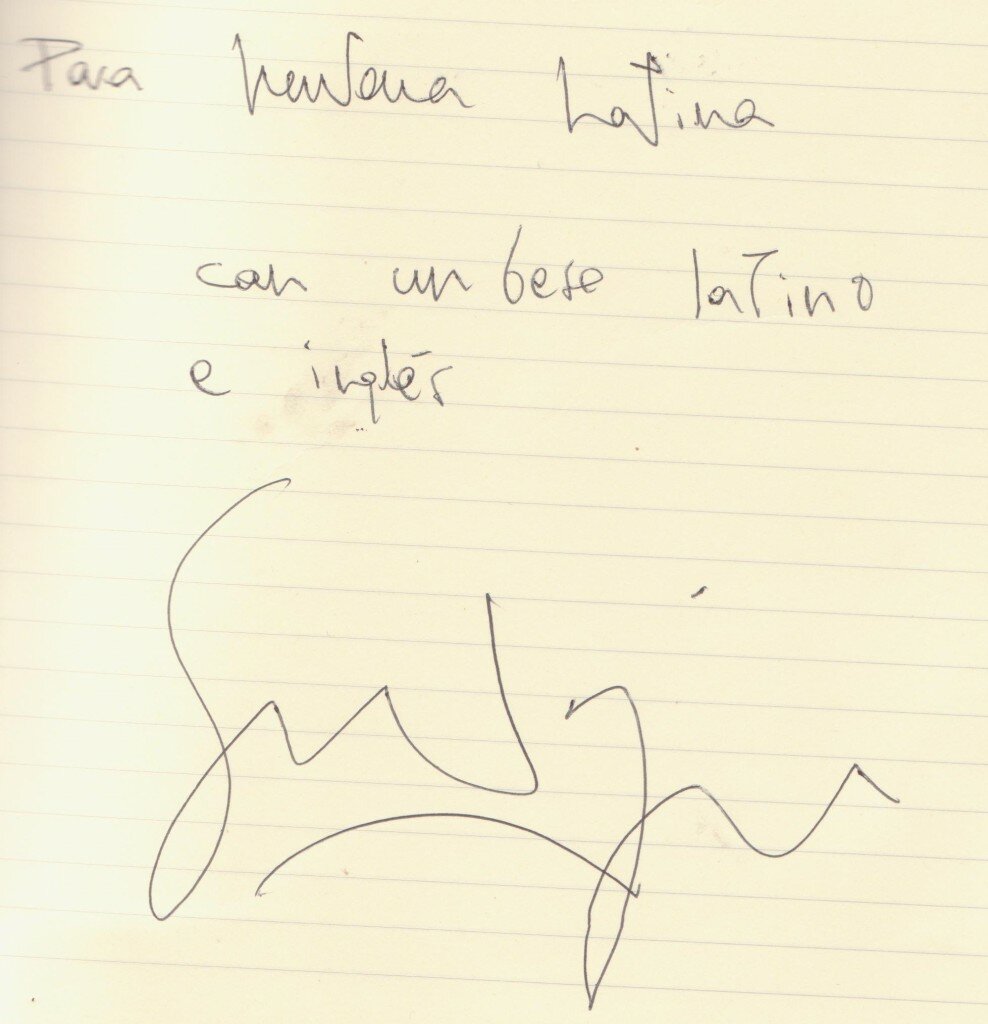 Para Ventana Latina
con un beso latino
e inglés